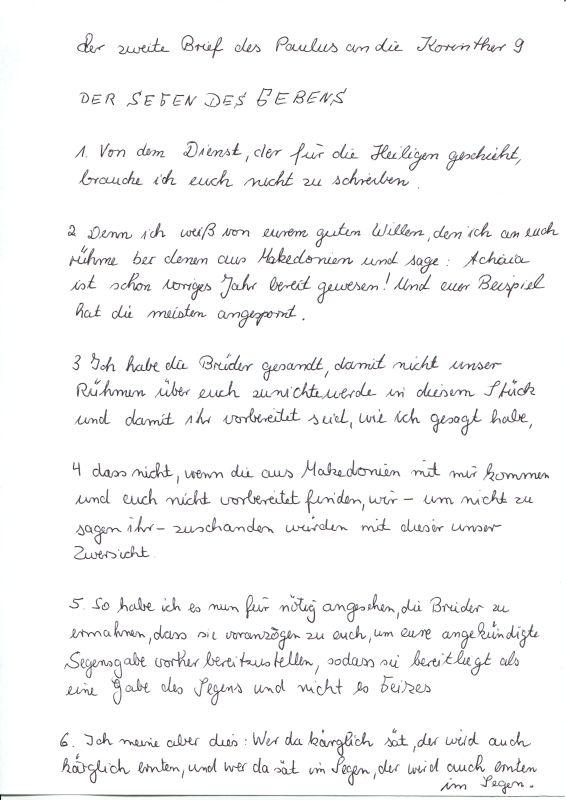 der zweite Brief des Paulus an die Korinther 9
DER SEGEN DES GEBENS
1. Von dem Dienst, der für die Heiligen geschieht,
brauche ich euch nicht zu schreiben.
2 Denn ich weiß von eurem guten Willen, den ich an euch
rühme bei denen aus Makedonien und sage: Achaia
ist schon voriges Jahr bereit gewesen! Und euer Beispiel
hat die meisten angespornt.
3 Ich habe die Brüder gesandt, damit nicht unser
Rühmen über euch zunichte werde in diesem Stück
und damit ihr vorbereitet seid, wie ich gesagt habe,
4 dass nicht, wenn die aus Makedonien mit mir kommen
und euch nicht vorbereitet finden, wir – um nicht zu
sagen ihr – zuschanden würden mit dieser unser
Zuversicht.
5. So habe ich es nun für nötig angesehen, die Brüder zu
ermahnen, dass sie voranzögen zu euch, um eure angekündigte
Segensgabe vorher bereitzustellen, sodass sie bereitliegt als
eine Gabe des Segens und nicht es Geizes
6. Ich meine aber dies: Wer da kärglich sät, der wird auch
kärglich ernten, und wer da sät im Segen, der wird auch ernten
im Segen.